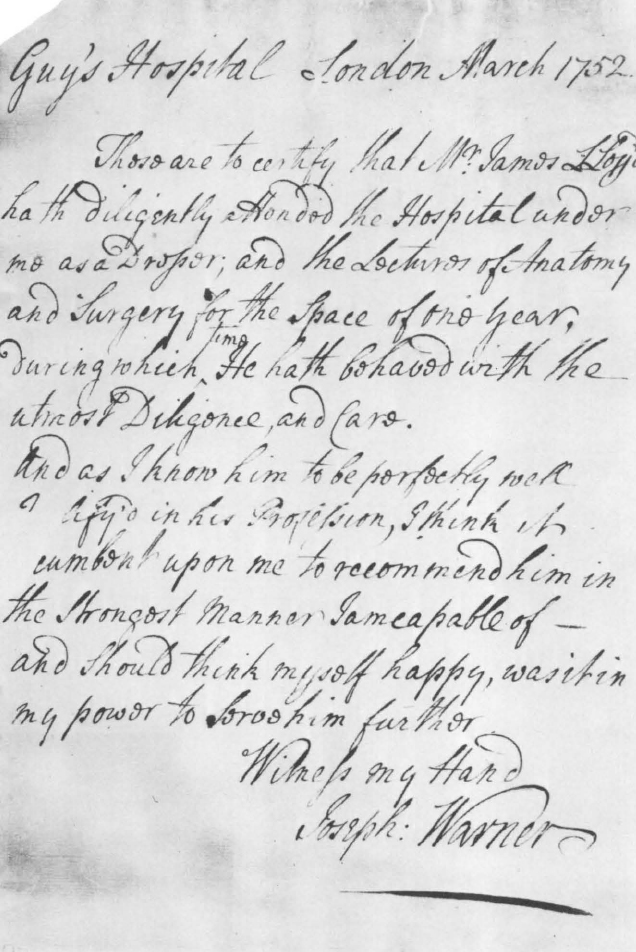 Guy's Hospital London March 1752.
These are to certify that Mr. James Lloyd
hath diligently attended the Hospital under
me as a Dresser; and the Lectures of Anatomy
and Surgery for the Space of one Year,
time
during which He hath behaved with the
utmost Diligence, and Care.
And as I know him to be perfectly well
lify'd in his Profession, I think it
cumbent upon me to recommend him in
the Strongest Manner I am capable of —
and Should think myself happy, was it in
my power to Serve him further
Witness my Hand
Joseph: Warner